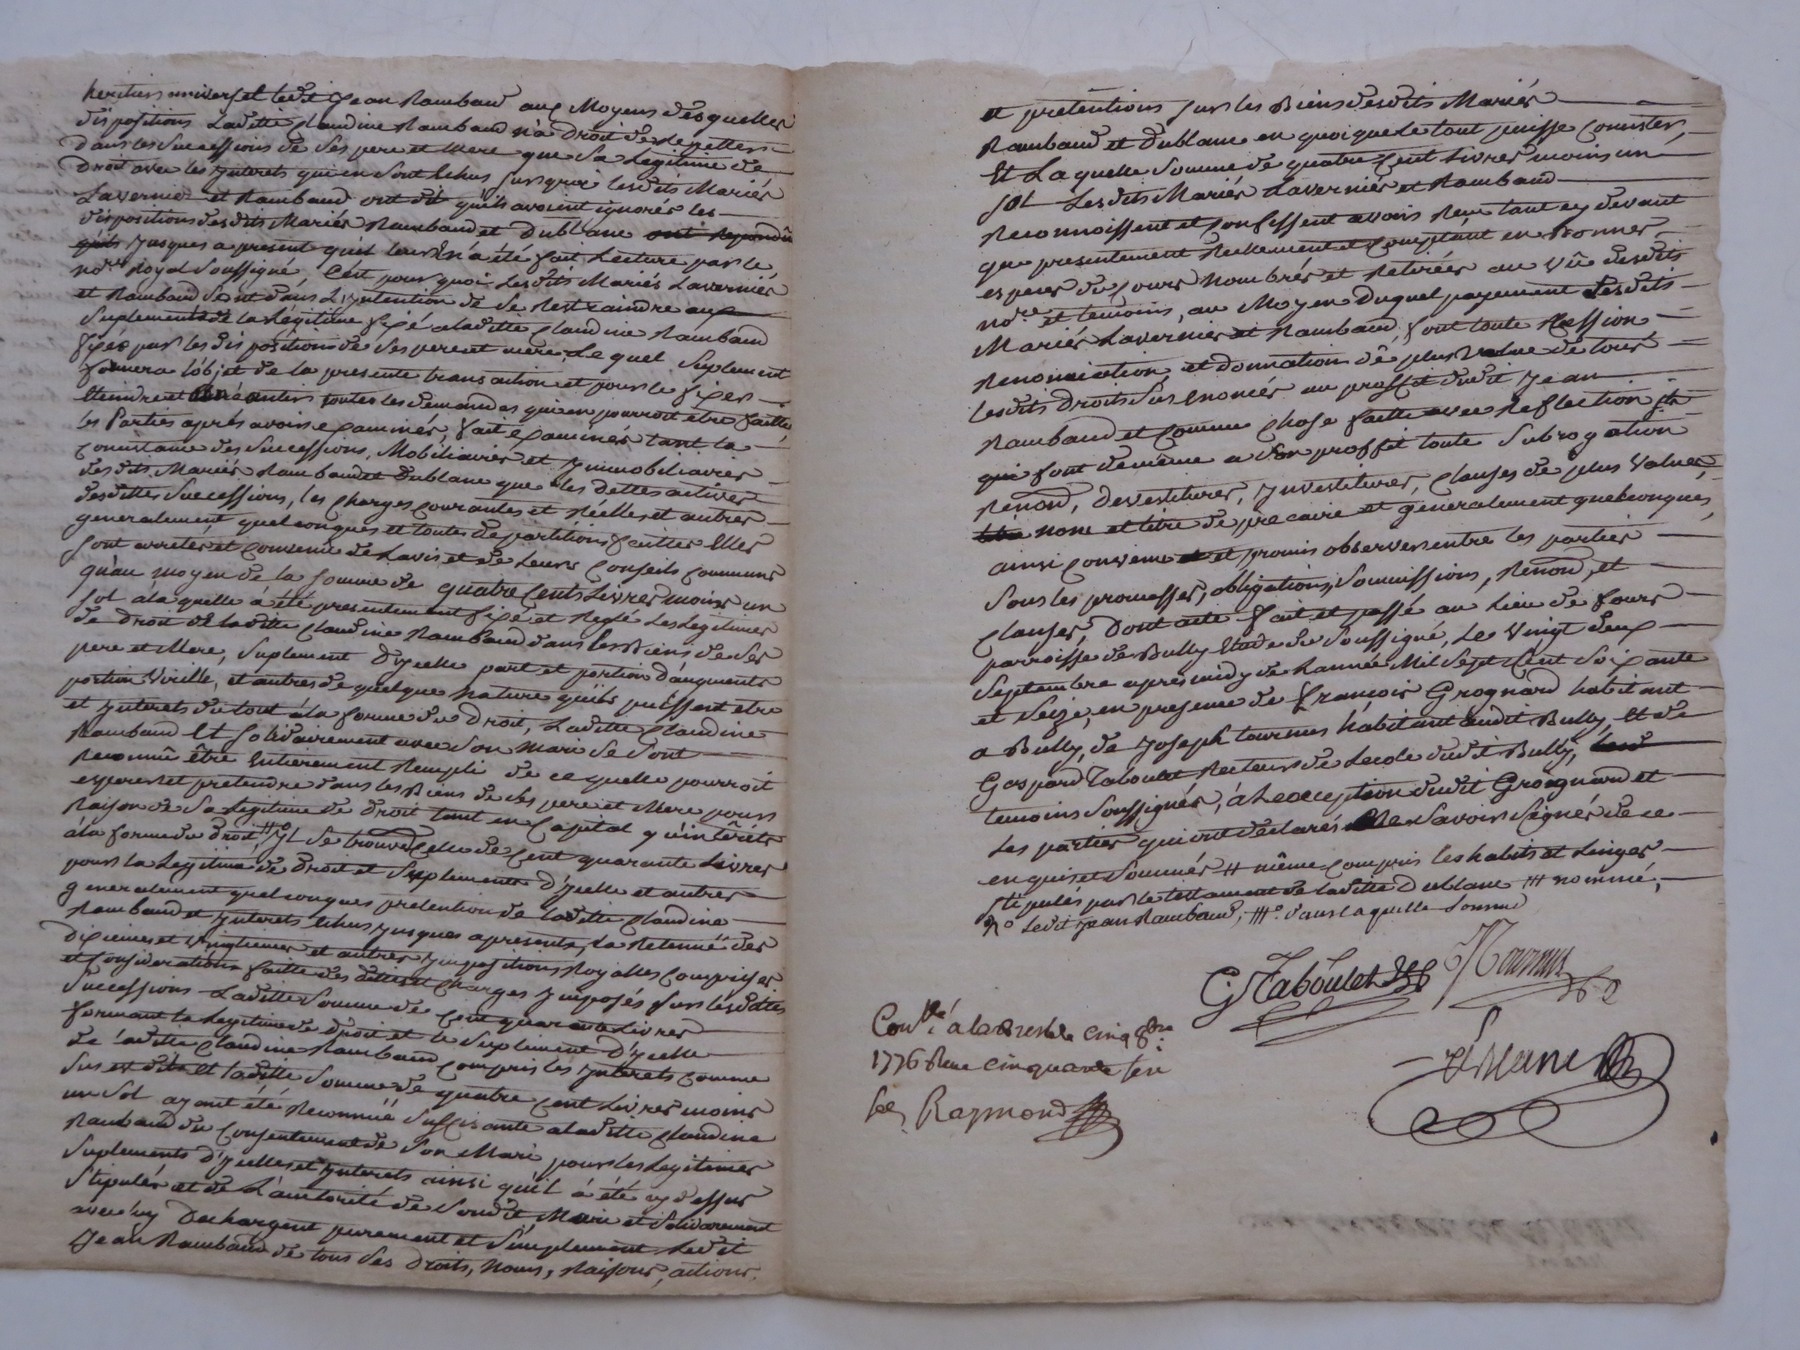 heritier universel ledit Jean Rambaud aux Moyens desquelles
dispositions Laditte Claudine Rambaud n'a droit de repetter
dans les Successions de Ses pere et Mere que Sa Legitime de
droit avec les Interets qui en Sont Echus Surquoi lesdits Mariés
Lavernier et Rambaud ont dit qu'ils avoient ignorés les
dispositions desdits Mariés Rambaud et Dublanc ont Repondu
qu'ils Jusques apresent qu'il leur En a été fait Lecture par le
no.re Royal Soussigné, C'est pourquoi Lesdits Mariés Lavernier
et Rambaud Sont dans L'Intention de Se Restraindre aux
Suplements de la Legitime fixé a laditte Claudine Rambaud
fixée par les dispositions de Ses pere et mere Lequel Suplement
formera l'objet de la presente transaction et pour le fixer
Eteindre et aneantir toutes les demandes qui en pourroit etre faittes
les Parties aprés avoir examinés, fait examiner tant la
Consistance des Successions, Mobiliaires et Immobiliaires
desdits Mariés Rambaud et Dublanc que les dettes actives
desdittes Successions, les Charges courantes et Réelles, et autres
generalement quelconques et toutes departitions faittes Elles
Sont arretés et Convenus de L'avis et de Leurs Conseils communs
qu'au moyen de la Somme de quatre Cents Livres moins un
Sol a la quelle à été presentement fixé et Reglé Les Legitimes
de droit de laditte Claudine Rambaud dans les Biens de Ses
pere et Mere, Suplement D'Icelle part et portion d'augments
portion Virille, et autres de quelque nature qu'ils puissent etre
et Interets du tout à la forme du Droit, Laditte Claudine
Rambaud Et Solidairement avec Son Mari Se Sont
Reconnû être Entierement Rempli de ce quelle pourroit
esperer et pretendre dans les Biens de Ses pere et Mere pour
Raison de Sa Legitime de droit tant en Capital qu'intérêts
à la forme du droit, Il Se trouve Celle de Cent quarante Livres
pour la Legitime de Droit et Suplements d'Icelle et autres
generalement quelconques pretention de laditte Claudine
Rambaud et Interets Echus Jusques apresents, la Retenuë des
dixiemes et Vingtiemes et autres Impositions Royalles comprises
et Considerations faitte des dettes et Charges Imposés Sur lesdittes
Successions Laditte Somme de Cent quarante Livres
formant la Legitime de Droit et le Suplement D'Icelle
de Laditte Claudine Rambaud compris les Interets comme
Sus est dit Et laditte Somme de quatre Cent Livres moins
un Sol ayant été Reconnuë Suffisante a laditte Claudine
Rambaud du Consentement de Son Mari pour les Legitimes
Suplements d'Icelles et Interets ainsi qu'il à été cy dessus
Stipulés et de L'autorité de Sondit Mari et Solidairement
avec luy Dechargent purement et Simplement Ledit
Jean Rambaud de tous Ses droits, Noms, Raisons, actions
et pretentions Sur les Biens desdits Mariés
Rambaud et Dublanc en quoique le tout puisse Consister,
Et La quelle Somme de quatre Cent Livres moins un
Sol Lesdits Mariés Lavernier et Rambaud
Reconnoissent et Confessent avoir Reçu tant cy devant
que presentement Reellement et Comptant en Bonnes
especes du Cours Nombrés et Retirées au Vû desdits
no.re et temoins, au Moyen Duquel payement Lesdits
Mariés Lavernier et Rambaud font toute Cession
Renonciation, et donnation de plus Value de tous
lesdits droits Sus Enoncés au proffit dudit Jean
Rambaud et Comme Chose faitte avec Reflection
qui font de même a Son proffit toute Subrogation
Renond, Devestitures, Investitures, Clauses de plus Values,
titre nom et titre de précaire et generalement quelconques,
ainsi Convenu et promis observer entre les parties
Sous les promesses, obligations, Soumissions, Renond, et
Clauses, Dont acte fait et passé au Lieu de Fours
parroisse de Bully Etude du Soussigné, Le Vingt deux
Septembre aprés midy de L'année Mil Sept Cent Soixante
et Seize, en presence de François Grognard habitant
a Bully, de Joseph tournus habitant audit Bully, Et de
Gaspard Taboulet Recteur de Lecole dudit Bully,
temoins Soussignés, à L'exception dudit Grognard et
Les parties qui ont déclarés Ne Savoir Signer de ce
enquis et Sommés # même compris les habits et Linges
Stipulés par le testament de laditte Dublanc ## nommé,
R.º Ledit Jean Rambaud, ###. dans laquelle Somme
G. Taboulet J Tournus
Con.lé à la Bresle cinq 8bre
1776 Reçu cinquante Six
Sols Raymond